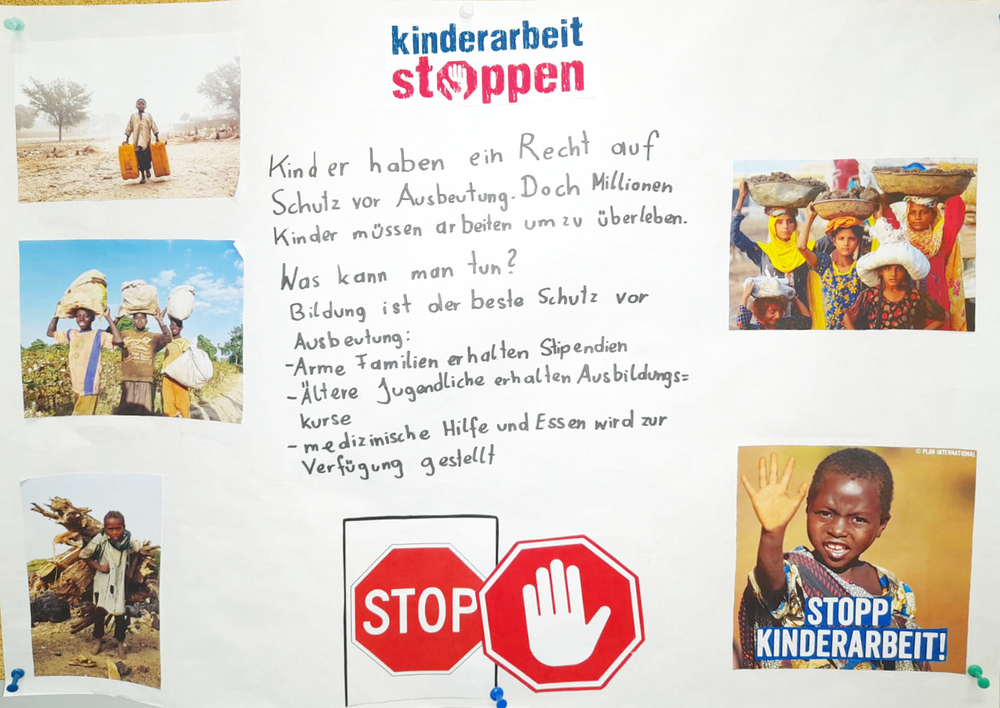 kinderarbeit
stoppen
Kinder haben ein Recht auf
Schutz vor Ausbeutung. Doch Millionen
Kinder müssen arbeiten um zu überleben.
Was kann man tun?
Bildung ist der beste Schutz vor
Ausbeutung:
-Arme Familien erhalten Stipendien
-Ältere Jugendliche erhalten Ausbildungs=
kurse
- medizinische Hilfe und Essen wird zur
Verfügung gestellt
STOP
© PLAN INTERNATIONAL
STOPP
KINDERARBEIT!